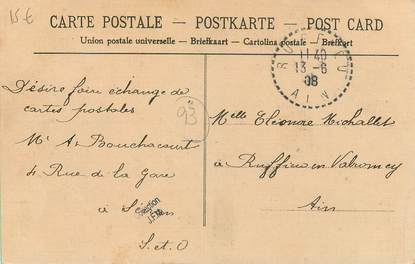 15€
CARTE POSTALE - POSTKARTE - POST CARD
Union postale universelle - Briefkaart - Cartolina postale - Brefkort
11 40
13-6
08
AIN
Désire faire échange de
cartes postales
Mr A. Bouchacourt
4 Rue de la Gare
à
S.et.O
93
Collection
J.F.M.
Melle Eléonore Michallet
à Ruffieu en Valromey
Ain